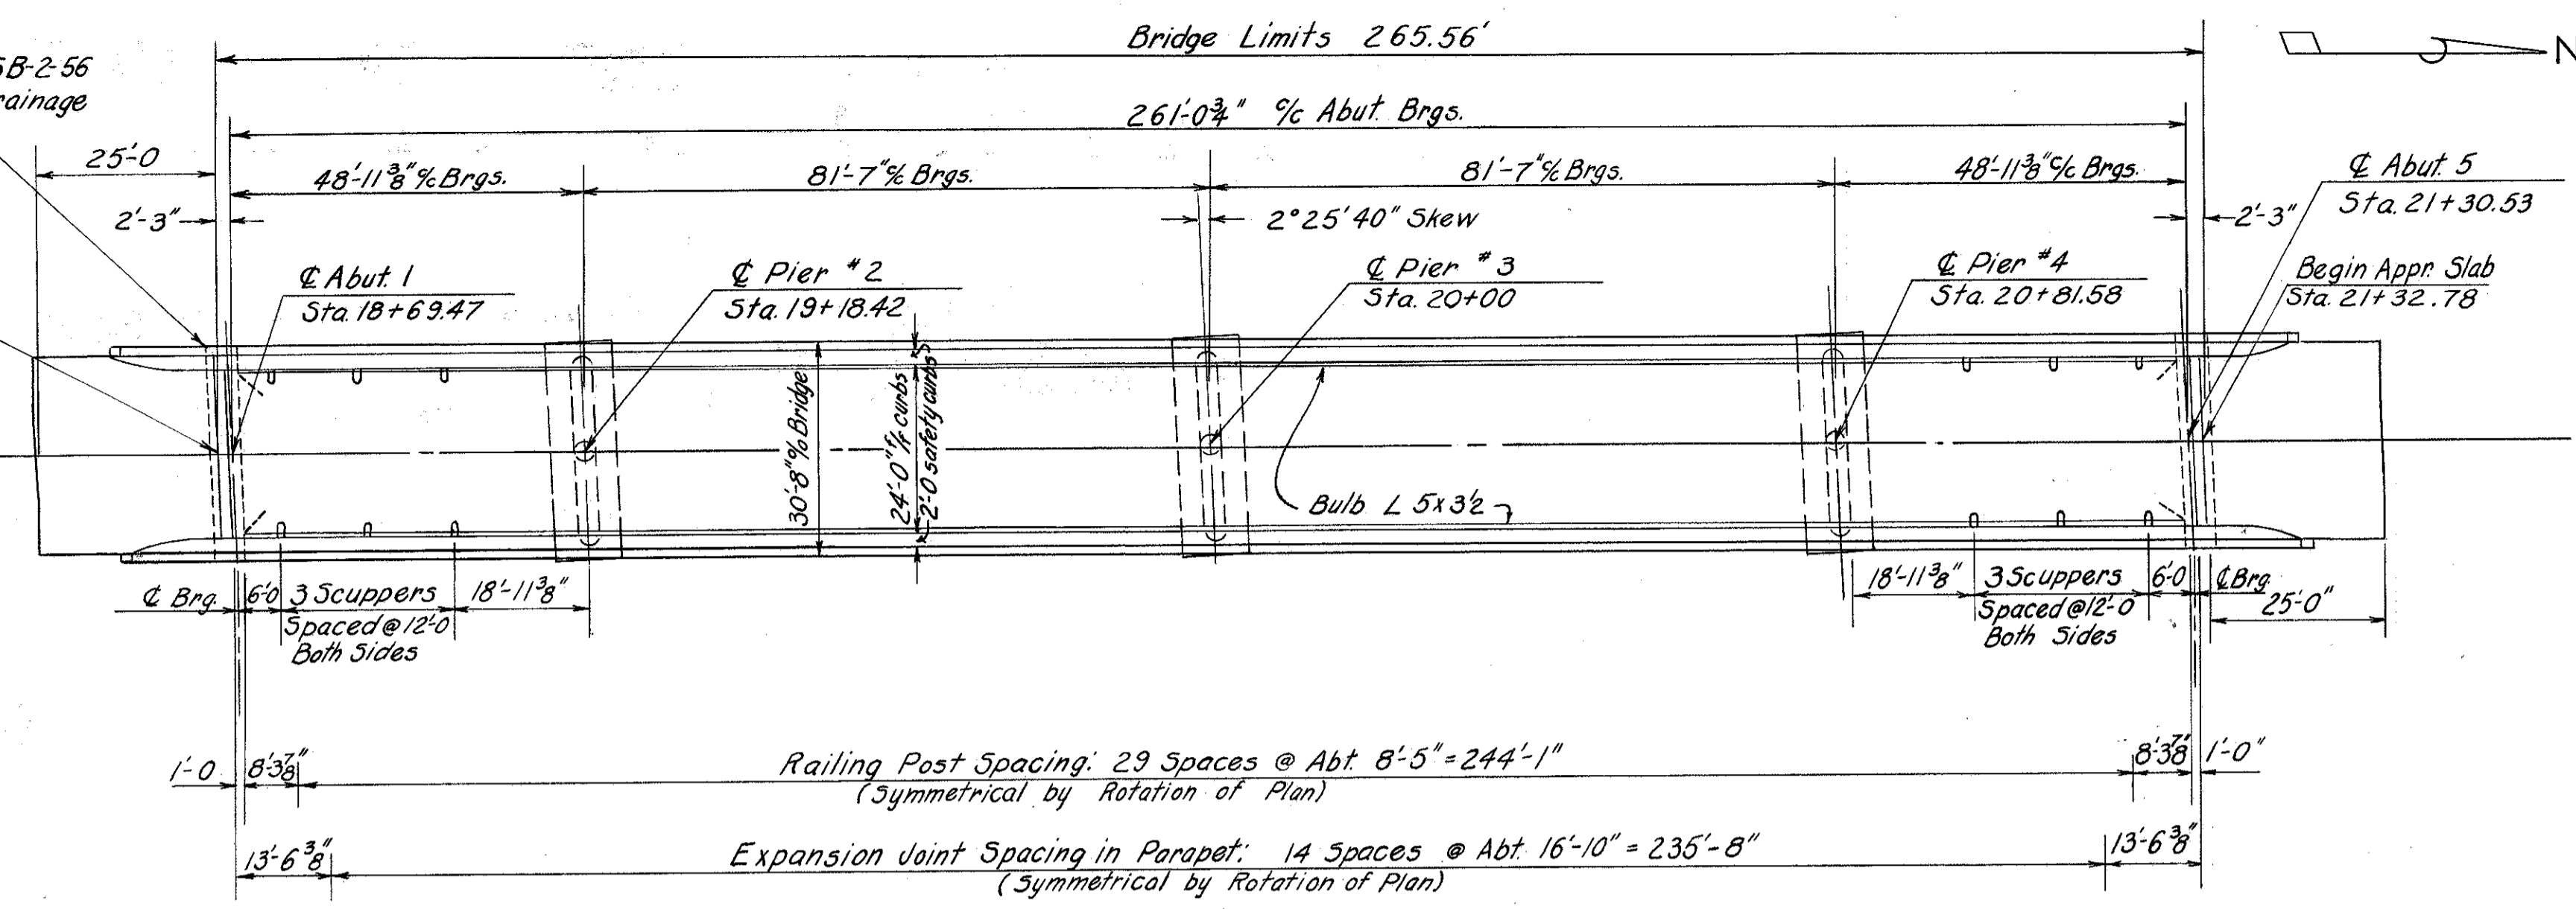 Bridge Limits 265.56'
N
5B-2-56
rainage
261'-0¾" c/c Abut. Brgs.
25'-0
48'-11⅜" c/c Brgs.
81'-7" c/c Brgs.
81'-7" c/c Brgs.
48'-11⅜" c/c Brgs.
℄ Abut. 5
Sta. 21+30.53
2'-3"
2°25'40" Skew
2'-3"
℄ Abut. 1
Sta. 18+69.47
℄ Pier #2
Sta. 19+18.42
℄ Pier #3
Sta. 20+00
℄ Pier #4
Sta. 20+81.58
Begin Appr. Slab
Sta. 21+32.78
30'-8" o/o Bridge
24'-0" f/f curbs
2'-0 safety curbs
Bulb L 5x3½
℄ Brg.
6'-0
3 Scuppers
Spaced @ 12'-0
Both Sides
18'-11⅜"
18'-11⅜"
3 Scuppers
Spaced @ 12'-0
Both Sides
6'-0
℄ Brg.
25'-0"
1'-0
8'-3⅞"
Railing Post Spacing: 29 Spaces @ Abt. 8'-5" = 244'-1"
(Symmetrical by Rotation of Plan)
8'-3⅞"
1'-0"
13'-6⅜"
Expansion Joint Spacing in Parapet: 14 Spaces @ Abt. 16'-10" = 235'-8"
(Symmetrical by Rotation of Plan)
13'-6⅜"